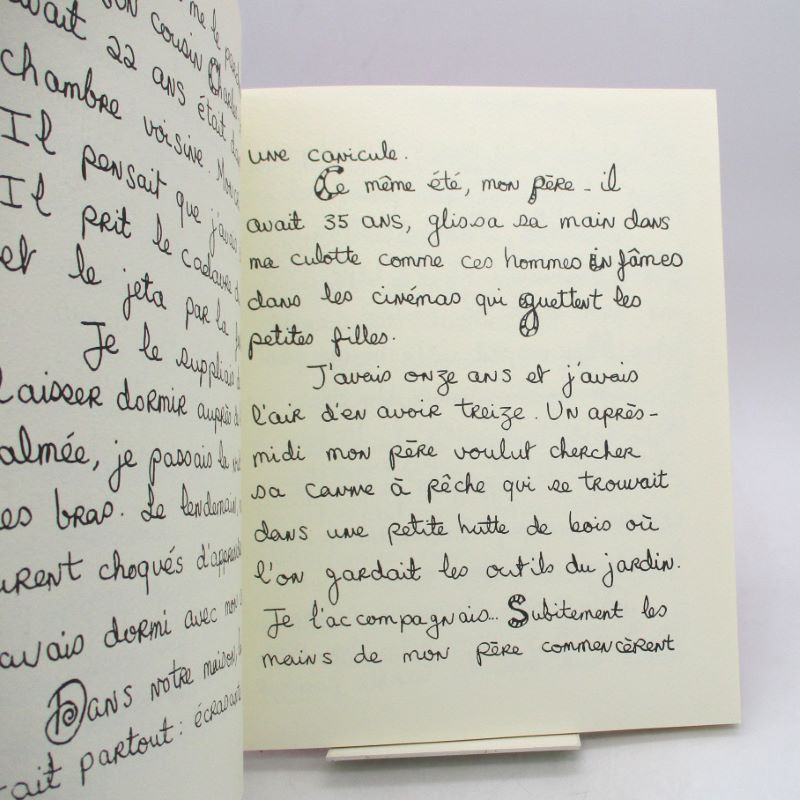 me le
son cousin Charles
avait 22 ans était
chambre voisine.
Il pensait que j'avais
Il prit le cadavre
et le jeta par la
Je le suppliais
laisser dormir auprès
almée, je passais la
les bras. Le lendemain,
urent choqués d'apprendre
avais dormi avec mon
Dans notre maison,
tait partout : écrasante
une canicule.
Ce même été, mon père - il
avait 35 ans, glissa sa main dans
ma culotte comme ces hommes infâmes
dans les cinémas qui guettent les
petites filles.
J'avais onze ans et j'avais
l'air d'en avoir treize. Un après-
midi mon père voulut chercher
sa canne à pêche qui se trouvait
dans une petite hutte de bois où
l'on gardait les outils du jardin.
Je l'accompagnais... Subitement les
mains de mon père commencèrent